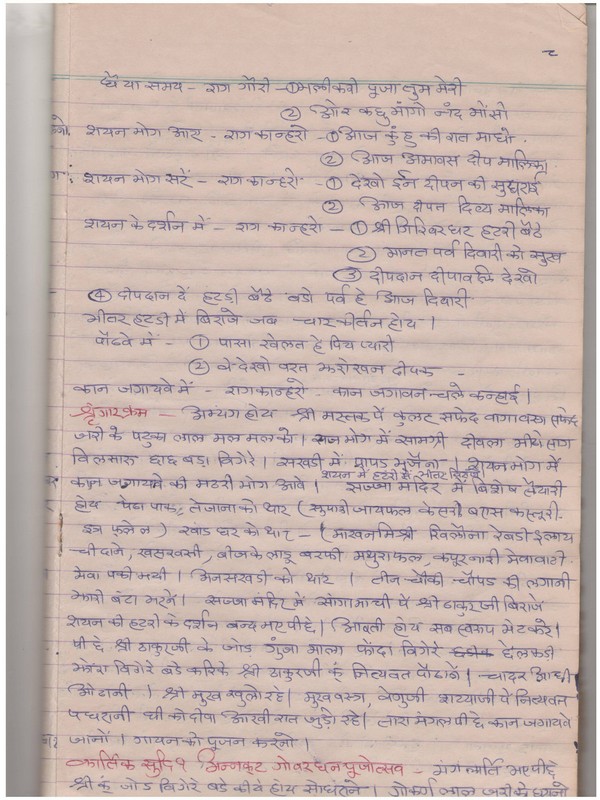 २
धैया समय - राग गौरी - ① भली करी पूजा तुम मेरी
② और कछु मांगो नंद मोंसो
शयन भोग आए - राग कान्हरो - ① आज कुंहु की रात माधो.
② आज अमावस दीप मालिका
शयन भोग सरें - राग कान्हरो - ① देखो इन दीपन की सुघराई
② आज दीपत दिव्य मालिका
शयन के दर्शन में - राग कान्हरो - ① श्री गिरिवरधर हटरी बैठे
② मानत पर्व दिवारी को सुख
③ दीपदान दीपावली देखो
④ दीपदान दें हटडी बैठे बडो पर्व हे आज दिवारी
भीतर हटडी में बिराजे जब चार कीर्तन होय।
पोंढवे में - ① पासा खेलत हे पिय प्यारी
② वे देखो बरत झरोखन दीपक -
कान जगायवे में - राग कान्हरो - कान जगावन चले कन्हाई।
श्रृंगार क्रम - अभ्यंग होय श्री मस्तक पें कुलह सफेद वागा वस्त्र सफेद
जरी के पटुका लाल मल मल को। राज भोग में सामग्री दीवला मीठो साग
विलसारू छाछ बडा विगेरे। सखडी में पापड भुजेंना। शयन भोग में
शयन में हटरी में
कान जगायवे की मठरी भोग आवे। सज्जा मंदिर में विशेष तैयारी
होय पेठा पाक, तेजाना को थार (सुपारी जायफल केसर बरास कस्तूरी
इत्र फुलेल) खांड घर को थार - (माखन मिश्री खिलौना रेवडी इलाय
चीदाने, खसखसी, बीज के लाडू बरफी मथुराफल, कपूरनारी मेवावाटी
मेवा पगी भयी। अनसखडी को थार। तीन चौकी चौपड की लगानी
झारी बंटा भरने। सज्जा मंदिर में सांगामाची पें श्री ठाकुरजी बिराजे
शयन की हटरी के दर्शन बन्द भए पीछे। आरती होय सब स्वरूप भेट करे।
पीछे श्री ठाकुरजी के जोड गुंजा माला फोंदा विगेरे छेलकडी
झाबा विगेरे बडे करिके श्री ठाकुरजी कूं नित्यवत पोंढाने। चादर आधी
ओढानी। श्री मुख खुलो रहे। मुखवस्त्र, वेणुजी शय्याजी पें नित्यवत
पधरानी घी को दीवा आखी रात जुडो रहे। तारा मंगल पीछे कान जगायवे
जानों। गायन को पूजन करनो।
कार्तिक सुदि १ अन्नकूट गोवर्धन पूजोत्सव - मंगलार्ति भए पीछे
श्री कूं जोड विगेरे बडे कीये होय सो धराने। गोकर्ण लाल जरी के धरानो